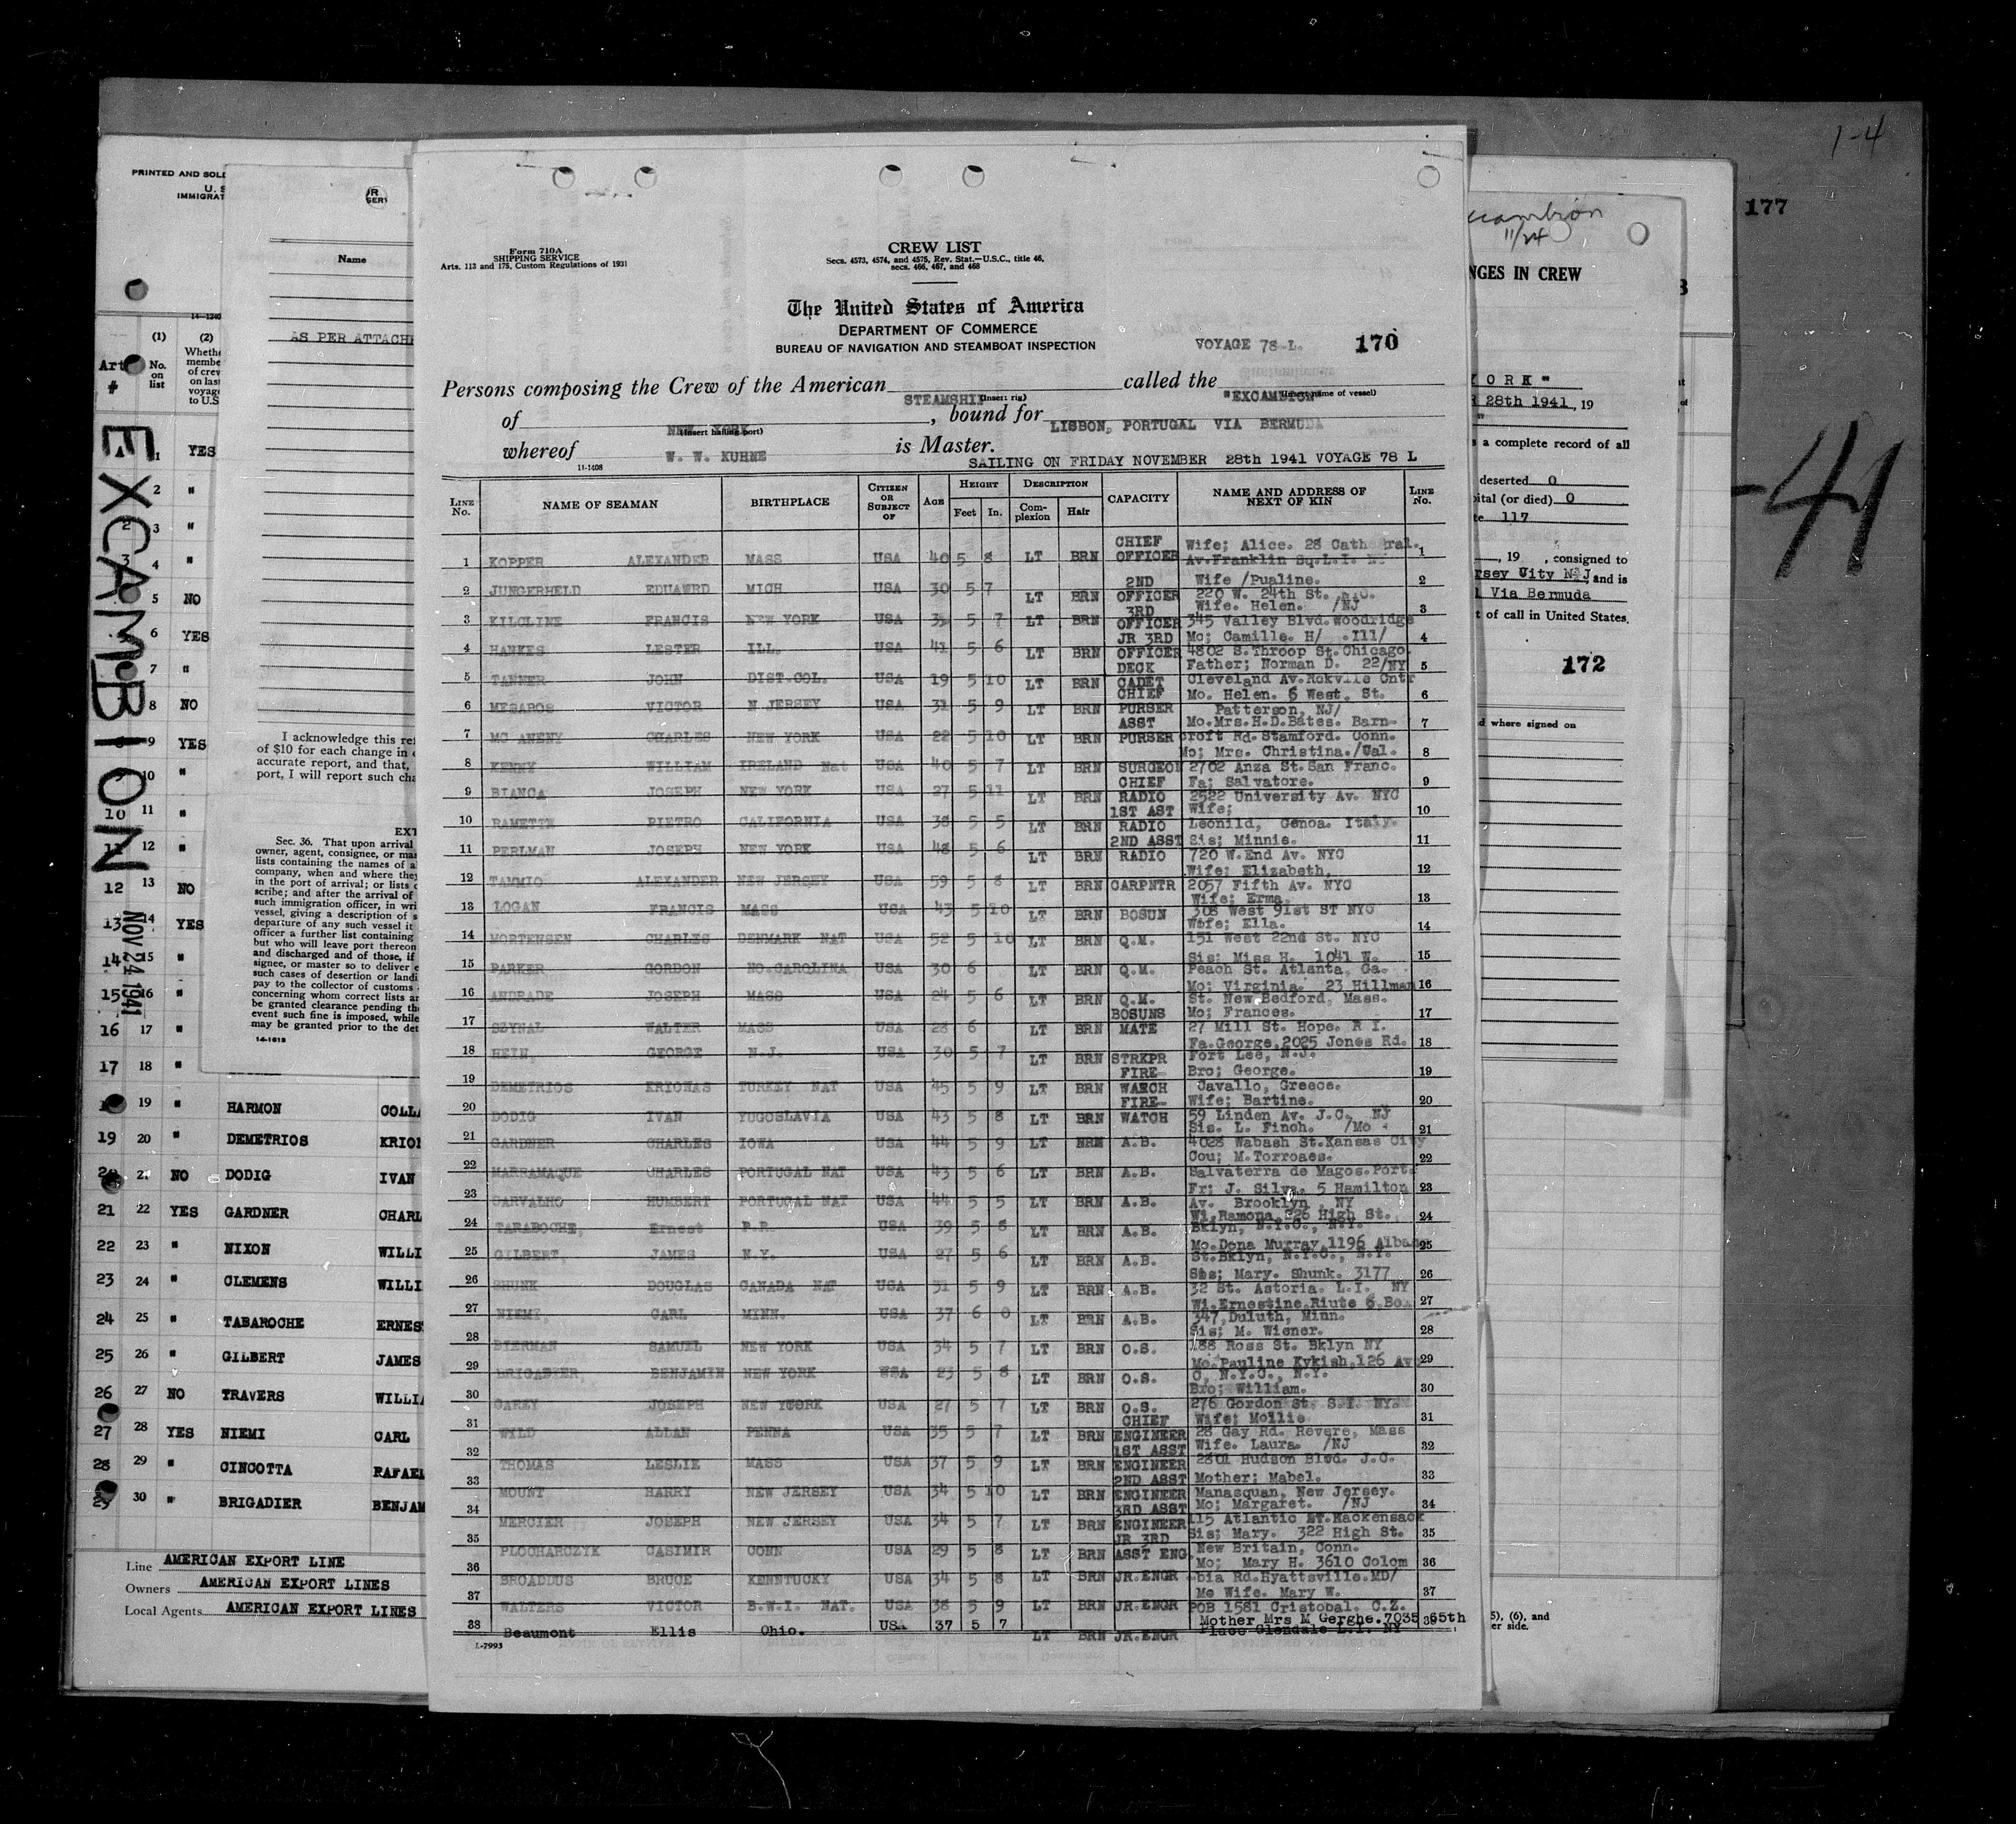 1-4
177
-41
PRINTED AND SOLD
U. S
IMMIGRAT
14-1240
(1) (2)
Art # No. on list
Whethe
membe
of crew
on last
voyage
to U.S
EXCAMBION
NOV 24 1941
1 YES
2 "
3 "
4 "
5 NO
6 YES
7 "
8 NO
9 YES
10 "
10 11 "
12 "
12 13 NO
13 14 YES
14 15 "
15 16 "
16 17 "
17 18 "
19 " HARMON COLL
19 20 " DEMETRIOS KRIO
20 21 NO DODIG IVAN
21 22 YES GARDNER CHARL
22 23 " NIXON WILLI
23 24 " CLEMENS WILLI
24 25 " TABAROCHE ERNES
25 26 " GILBERT JAMES
26 27 NO TRAVERS WILLI
27 28 YES NIEMI CARL
28 29 " CINCOTTA RAFAEL
29 30 " BRIGADIER BENJAM
Line AMERICAN EXPORT LINE
Owners AMERICAN EXPORT LINES
Local Agents AMERICAN EXPORT LINES
Name
AS PER ATTACH
I acknowledge this re
of $10 for each change in
accurate report, and that,
port, I will report such cha
EXT
Sec. 36. That upon arrival
owner, agent, consignee, or mas
lists containing the names of a
company, when and where they
in the port of arrival; or lists
scribe; and after the arrival of
such immigration officer, in wri
vessel, giving a description of s
departure of any such vessel it
officer a further list containing
but who will leave port thereon
and discharged and of those, if
signee, or master so to deliver
such cases of desertion or landi
pay to the collector of customs
concerning whom correct lists ar
be granted clearance pending the
event such fine is imposed, while
may be granted prior to the det
14-1613
Form 710A
SHIPPING SERVICE
Arts. 113 and 175, Custom Regulations of 1931
CREW LIST
Secs. 4573, 4574, and 4575, Rev. Stat.—U.S.C., title 46,
secs. 466, 467, and 468
The United States of America
DEPARTMENT OF COMMERCE
BUREAU OF NAVIGATION AND STEAMBOAT INSPECTION
VOYAGE 78-L. 170
Persons composing the Crew of the American STEAMSHIP (Insert rig) called the "EXCAMBION" (Insert name of vessel)
of NEW YORK (Insert hailing port), bound for LISBON, PORTUGAL VIA BERMUDA
whereof W. W. KUHNE is Master.
11-1408
SAILING ON FRIDAY NOVEMBER 28th 1941 VOYAGE 78 L
LINE No. NAME OF SEAMAN BIRTHPLACE CITIZEN OR SUBJECT OF AGE HEIGHT Feet In. DESCRIPTION Complexion Hair CAPACITY NAME AND ADDRESS OF NEXT OF KIN LINE No.
1 KOPPER ALEXANDER MASS USA 40 5 8 LT BRN CHIEF OFFICER Wife; Alice. 28 Cathedral. Av. Franklin Sq. L.I. 1
2 JUNGERHELD EDUAWRD MICH USA 30 5 7 LT BRN 2ND OFFICER Wife /Pualine. 220 W. 24th St. NYC. 2
3 KILCLINE FRANCIS NEW YORK USA 5 7 LT BRN 3RD OFFICER Wife. Helen. /NJ 345 Valley Blvd. Woodridge 3
4 HANKES LESTER ILL. USA 41 5 6 LT BRN JR 3RD OFFICER Mo; Camille. H/ .Ill/ 4802 S. Throop St. Chicago 4
5 TANNER JOHN DIST.COL. USA 19 5 10 LT BRN DECK CADET Father; Norman D. 22/NY Cleveland Av. Rokville Cntr 5
6 MESAROS VICTOR N JERSEY USA 31 5 9 LT BRN CHIEF PURSER Mo. Helen. 6 West. St. Patterson, NJ/ 6
7 MC ANENY CHARLES NEW YORK USA 22 5 10 LT BRN ASST PURSER Mo. Mrs. H.D. Bates. Barn- croft Rd. Stamford. Conn. 7
8 KENNY WILLIAM IRELAND Nat USA 40 5 7 LT BRN SURGEON Mo; Mrs. Christina./Cal. 2702 Anza St. San Franc. 8
9 BIANCA JOSEPH NEW YORK USA 27 5 11 LT BRN CHIEF RADIO Fa; Salvatore. 2522 University Av. NYC 9
10 RAMETTA PIETRO CALIFORNIA USA 38 5 5 LT BRN 1ST AST RADIO Wife; Leonild, Genoa. Italy. 10
11 PERLMAN JOSEPH NEW YORK USA 48 5 6 LT BRN 2ND ASST RADIO Sis; Minnie. 720 W. End Av. NYC 11
12 TAMMIO ALEXANDER NEW JERSEY USA 59 5 8 LT BRN CARPNTR Wife; Elizabeth, 2057 Fifth Av. NYC 12
13 LOGAN FRANCIS MASS USA 43 5 10 LT BRN BOSUN Wife; Erma. 308 West 91st ST NYC 13
14 MORTENSEN CHARLES DENMARK NAT USA 52 5 10 LT BRN Q.M. Wofe; Ella. 151 West 22nd St. NYC 14
15 PARKER GORDON NO.CAROLINA USA 30 6 LT BRN Q.M. Sis; Miss H. 1041 W. Peach St. Atlanta, Ga. 15
16 ANDRADE JOSEPH MASS USA 24 5 6 LT BRN Q.M. Mo; Virginia. 23 Hillman St. New Bedford, Mass. 16
17 SZYNAL WALTER MASS USA 28 6 LT BRN BOSUNS MATE Mo; Frances. 27 Mill St. Hope. R I. 17
18 HEIN, GEORGE N.J. USA 30 5 7 LT BRN STRKPR Fa. George, 2025 Jones Rd. Fort Lee, N.J. 18
19 DEMETRIOS KRIONAS TURKEY NAT USA 45 5 9 LT BRN FIRE- WARCH Bro; George. Javallo, Greece. 19
20 DODIG IVAN YUGOSLAVIA USA 43 5 8 LT BRN FIRE- WATCH Wife; Bartine. 59 Linden Av. J.C. NJ 20
21 GARDNER CHARLES IOWA USA 44 5 9 LT BRN A.B. Sis. L. Finch. /Mo 4028 Wabash St. Kansas City 21
22 MARRAMAQUE CHARLES PORTUGAL NAT USA 43 5 6 LT BRN A.B. Cou; M. Torroaes. Salvaterra de Magos. Port. 22
23 CARVALHO HUMBERT PORTUGAL NAT USA 44 5 5 LT BRN A.B. Fr; J. Silva. 5 Hamilton Av. Brooklyn, NY 23
24 TABAROCHE, Ernest P.R. USA 39 5 8 LT BRN A.B. Wi. Ramona, 326 High St. Bklyn, N.Y.C., N.Y. 24
25 GILBERT, JAMES N.Y. USA 27 5 6 LT BRN A.B. Mo. Dona Murray, 1196 Alban St. Bklyn, N.Y.C., N.Y. 25
26 SHUNK DOUGLAS CANADA NAT USA 31 5 9 LT BRN A.B. Sbs; Mary. Shunk. 3177 32 St. Astoria. L.I. NY 26
27 NIEMI, CARL MINN. USA 37 6 0 LT BRN A.B. Wi. Ernestine. Riute 6 Box 347, Duluth, Minn. 27
28 BIERMAN SAMUEL NEW YORK USA 34 5 7 LT BRN O.S. Sis; M. Wiener. 188 Ross St. Bklyn NY 28
29 BRIGADIER, BENJAMIN NEW YORK USA 23 5 8 LT BRN O.S. Mo. Pauline Kykish, 126 Av O, N.Y.C., N.Y. 29
30 CAREY JOSEPH NEW YOORK USA 27 5 7 LT BRN O.S. Bro; William. 276 Gordon St. S.I. NY. 30
31 WILD ALLAN PENNA USA 35 5 7 LT BRN CHIEF ENGINEER Wife; Mollie 28 Gay Rd. Revere, Mass 31
32 THOMAS LESLIE MASS USA 37 5 9 LT BRN 1ST ASST ENGINEER Wife. Laura. /NJ 2801 Hudson Blvd. J.C. 32
33 MOUNT HARRY NEW JERSEY USA 34 5 10 LT BRN 2ND ASST ENGINEER Mother; Mabel. Manasquan, New Jersey. 33
34 MERCIER JOSEPH NEW JERSEY USA 34 5 7 LT BRN 3RD ASST ENGINEER Mo; Margaret. /NJ 115 Atlantic ST. Hackensack 34
35 PLOCHARCZYK CASIMIR CONN USA 29 5 8 LT BRN JR 3RD ASST ENG Sis; Mary. 322 High St. New Britain, Conn. 35
36 BROADDUS BRUCE KENNTUCKY USA 34 5 8 LT BRN JR.ENGR Mo; Mary H. 3610 Colom bia Rd. Hyattsville. MD/ 36
37 WALTERS VICTOR B.W.I. NAT. USA 38 5 9 LT BRN JR.ENGR Mo Wife. Mary W. POB 1581 Cristobal. C.Z. 37
38 Beaumont Ellis Ohio. USA 37 5 7 LT BRN JR.ENGR Mother Mrs M Gerghe. 7035 65th Place Glendale L.I. NY 38
L-7993
Excambion
11/24
NGES IN CREW
YORK"
28th 1941, 19
a complete record of all
deserted 0
ital (or died) 0
117
, 19 , consigned to
rsey City N J and is
Via Bermuda
t of call in United States.
172
d where signed on
5), (6), and
er side.